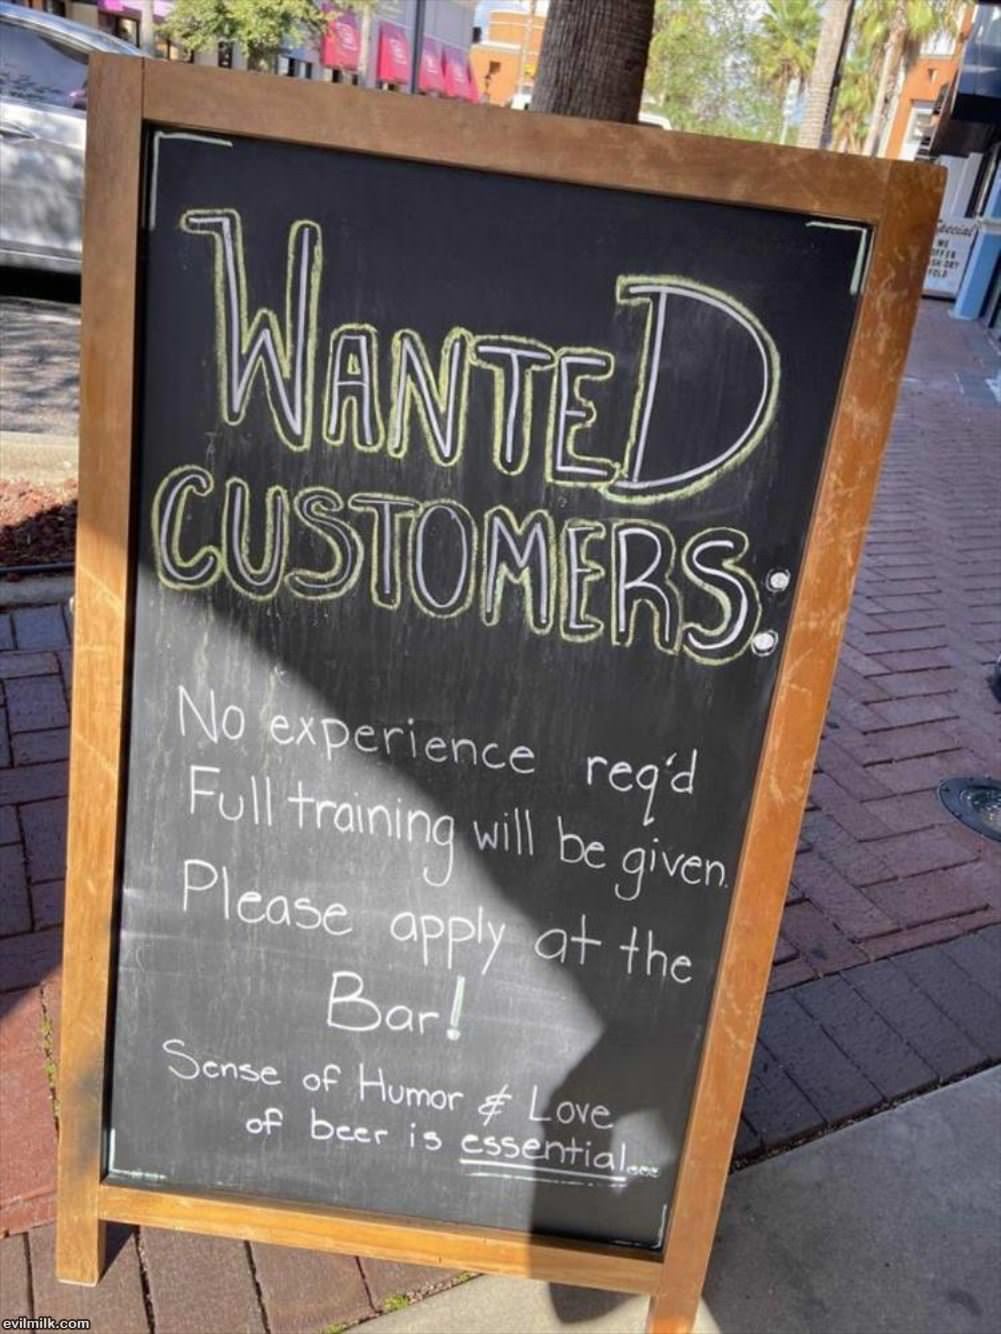 WANTED
CUSTOMERS:
No experience req'd
Full training will be given.
Please apply at the
Bar!
Sense of Humor & Love
of beer is essential...
Special
WE
OFFER
evilmilk.com